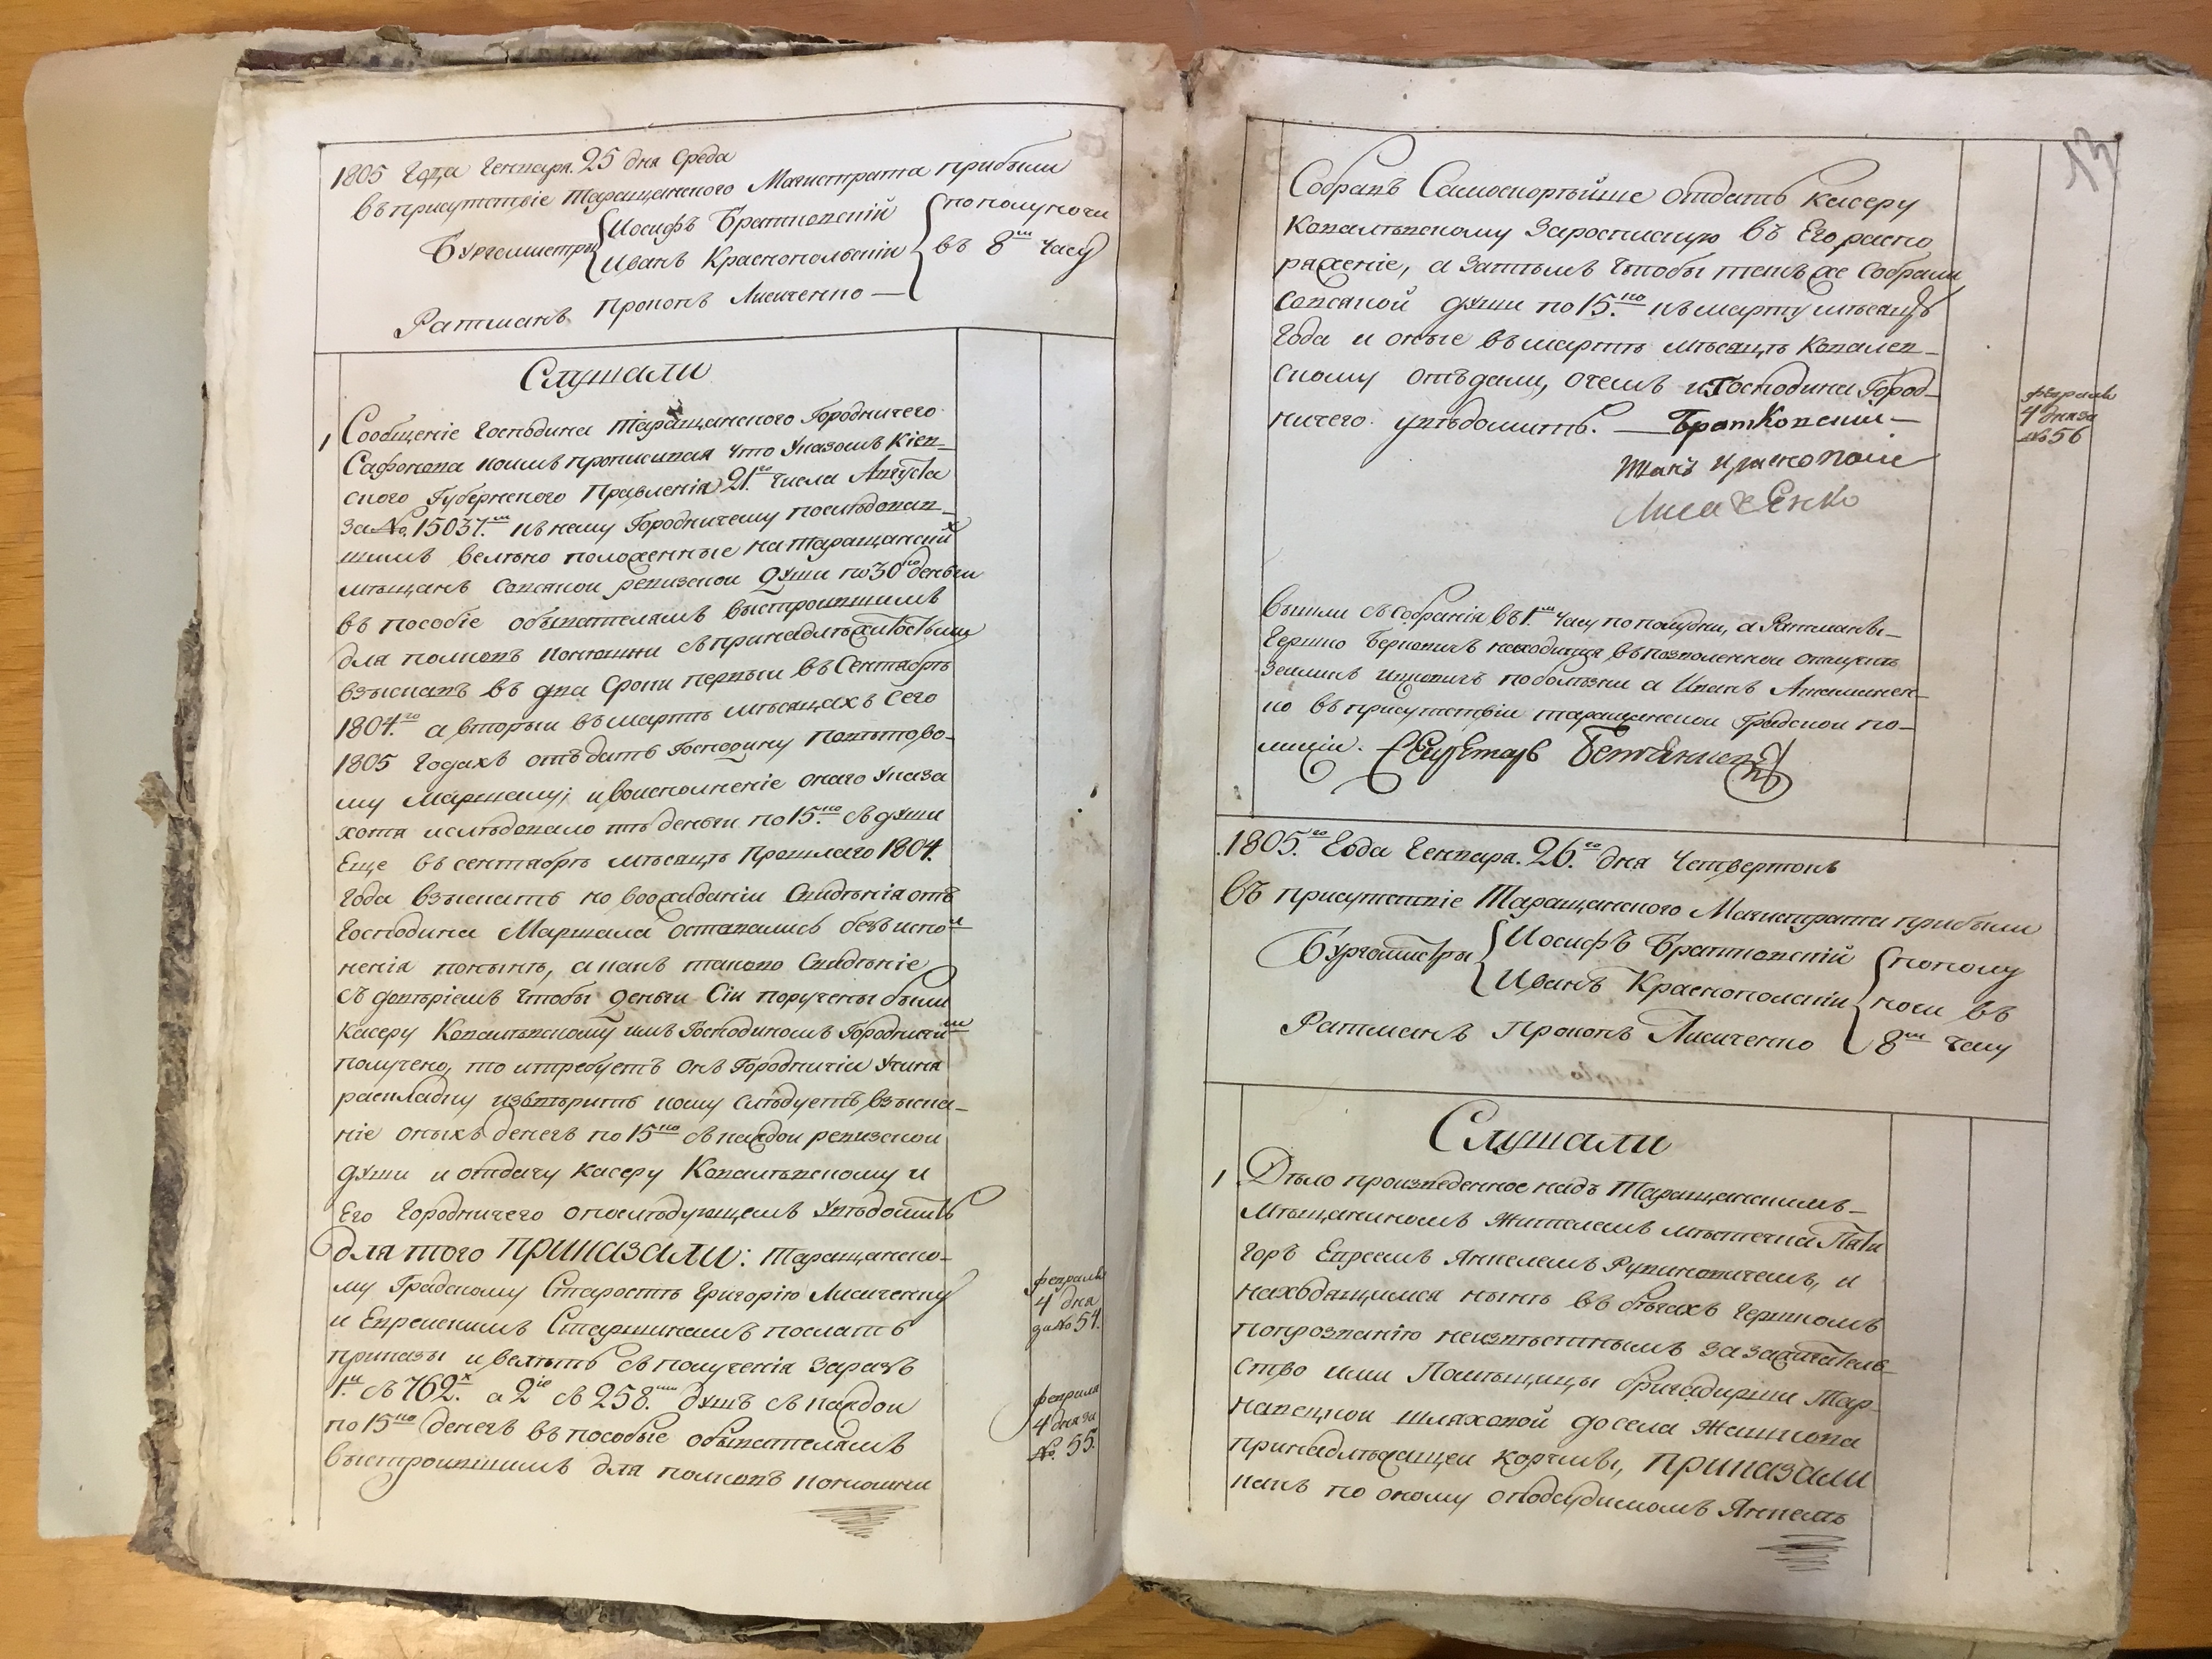 1805 года Генваря 25 дня Среда
въ присутствіе Таращанского Магистрата прибыли
Бургомистры Иосифъ Братковскій пополуночи
Иванъ Краснопольскій въ 8м часу
Ратманъ Прокопъ Лисиченко —
Слушали
1 Сообщеніе господина Таращанского Городничего
Сафонова коимъ прописивая что Указомъ Кіев-
ского Губернского Правленія 21го числа Августа
за № 15037м къ нему Городничему последовав-
шимъ велено положенные на Таращанских
мѣщанъ сожной ревизской души по 30ко денги
въ пособіе обывателямъ выстроившимъ
для полковъ конюшни съ принадлежностьми
взыскавъ въ два сроки первый въ Сентябрѣ
1804го а вторый въ мартѣ мѣсяцахъ сего
1805 годахъ отъдать Господину Поветово-
му Маршалу; и воисполненіе оного Указа
хотя и следовало тѣ денги по 15ко съ души
Еще въ сентябрѣ мѣсяцѣ прошлаго 1804
года взыскать но воожиданіи Свидѣнія отъ
Господина Маршала оставались безъиспол
ненія понынѣ, а какъ таково Свидѣніе
съ довѣріемъ чтобы денги Сіи поручены были
касеру Ковалевскому имъ Господиномъ Городничим
получено, то и требуетъ онъ Городничій учиня
раскладку извѣрить кому слѣдуетъ взыска-
ніе оныхъ денегъ по 15ко съ каждой ревизской
души и отдачу касеру Ковалевскому и
Его Городничего опослѣдующемъ Увѣдомить
Для того приказали: Таращанско-
му Градскому Старостѣ Григорію Лисиченку
и Еврейскимъ Старшинамъ послать
приказы и велѣть съ полученія заразъ
1м съ 762х а 2ю съ 258ми душъ съ каждой
по 15ко денегъ въ пособые обывателямъ
выстроившимъ для полковъ конюшни
февраля
4 дня
за № 54.
февраля
4 дня за
№ 55.
13
Собравъ Самоскорѣйше отдать касеру
Ковалевскому Заросписку въ Его распо
ряженіе, а затѣмъ чтобы такъ же Собрали
сожной души по 15ко къ марту мѣсяцу
года и оные въ мартѣ мѣсяцѣ Ковалев-
скому отъдали, очемъ и Господина Город-
ничего увѣдомить. — Братковскій —
Иванъ Краснополс
Лисиченко
февраля
4 дня за
№ 56
Вышли съ собранія въ 1м часу по полудни, а Ратманы-
Гершко Берковичъ находится въ позволенной отлучкѣ
Зелманъ Ицковичъ по болѣзни а Иванъ
но въ присутствіи таращанской Градской по-
лиціи. Секретарь
1805го Года Генваря 26го дня Четвертокъ
въ присутствіе Таращанского Магистрата прибыли
Бургомистры Иосифъ Братковскій пополу
Иванъ Краснополскій ночи въ
Ратманъ Прокопъ Лисиченко 8м часу
Слушали
1 Дѣло произведенное надъ Таращанскимъ-
Мѣщаниномъ Жителемъ мѣстечка Пяти
горъ Евреемъ Янкелемъ Рувиновичемъ, и
находящимся нынѣ въ бѣгахъ Гершкомъ
попрозванію неизвѣстнымъ за зажигатель
ство ими Помѣщицы бригадирши Мар-
ковой до села Жашкова
принадлежащей корчмы, приказали
какъ по оному оподсудимомъ Янкелѣ